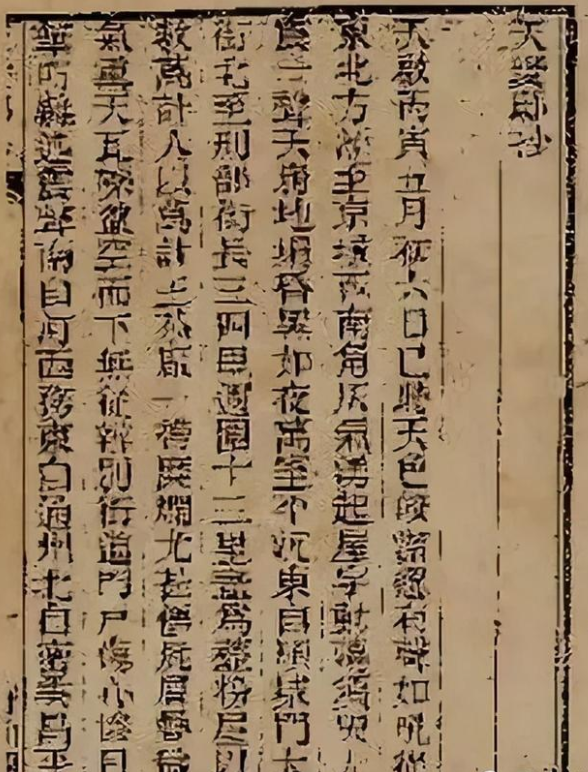 天變邸抄
天啟丙寅五月初六日巳時天色皎潔忽有聲如吼從
東北方漸至京城西南角灰氣湧起屋宇動蕩須臾大
震一聲天崩地塌昏黑如夜萬室平沉東自順城門大
街北至刑部街長三四里週圍十三里盡為齏粉屋以
數萬計人以萬計王恭廠一帶糜爛尤甚僵屍層疊穢
氣熏天瓦礫盈空而下無從辨別街道門戶傷心慘目
筆所難述震聲南自河西務東自通州北自密雲昌平